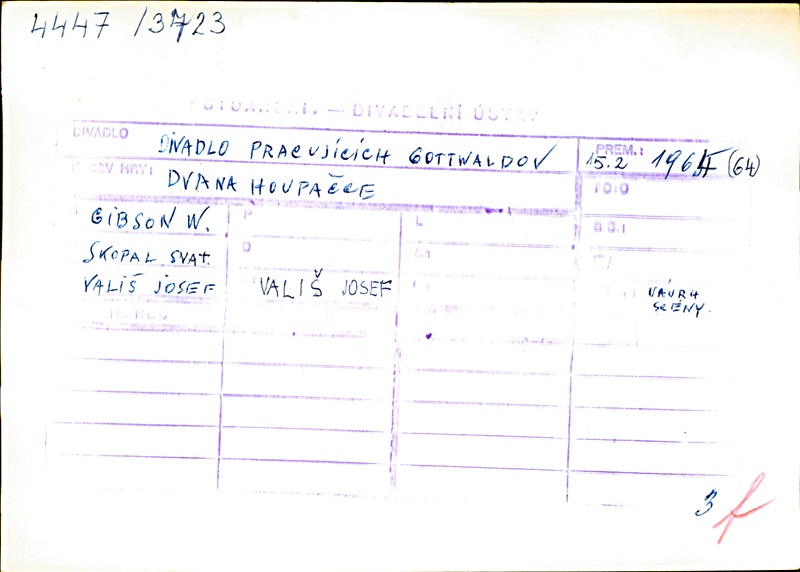 4447 /3723
FOTOARCHIV — DIVADELNÍ ÚSTAV
DIVADLO DIVADLO PRACUJÍCÍCH GOTTWALDOV PREM.: 15.2 1964 (64)
HRY: DVA NA HOUPAČCE
GIBSON W.
SKOPAL SVAT.
VALIŠ JOSEF VALIŠ JOSEF NÁVRH
SCÉNY.
3